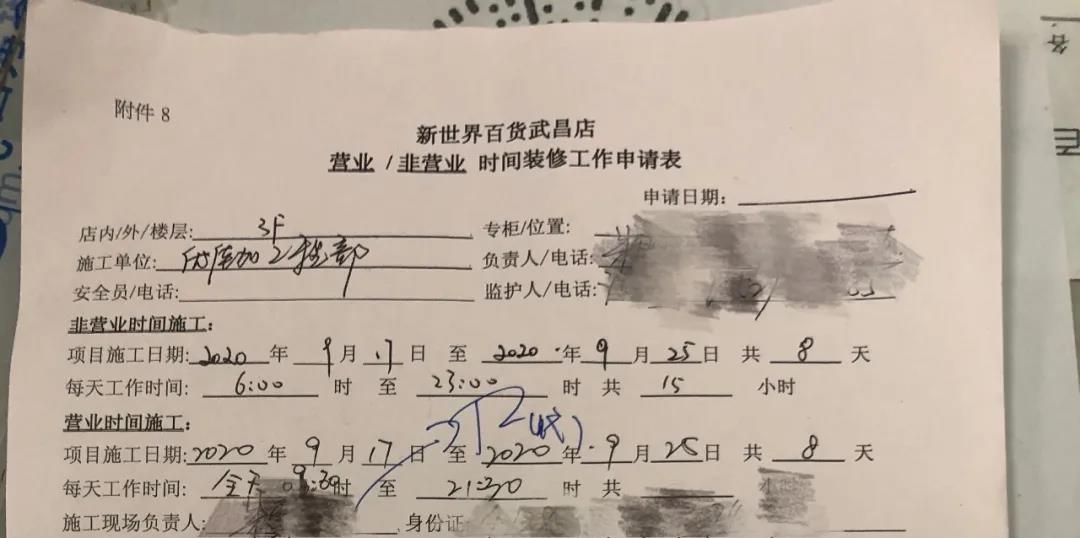 附件 8
新世界百货武昌店
营业 / 非营业 时间装修工作申请表
申请日期:
店内/外/楼层: 3F 专柜/位置:
施工单位: 工程部 负责人/电话:
安全员/电话: 监护人/电话:
非营业时间施工:
项目施工日期: 2020 年 9 月 17 日 至 2020 年 9 月 25 日 共 8 天
每天工作时间: 6:00 时 至 23:00 时 共 15 小时
营业时间施工:
项目施工日期: 2020 年 9 月 17 日 至 2020 年 9 月 25 日 共 8 天
每天工作时间: 全天 时 至 21:30 时 共 小时
施工现场负责人: 身份证